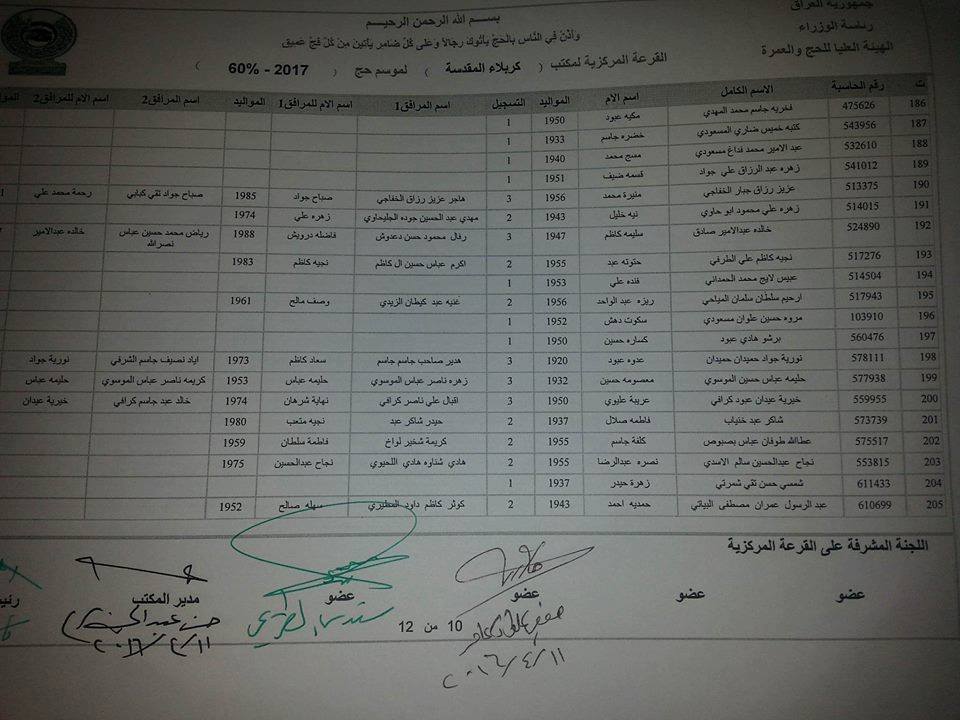 جمهورية العراق
رئاسة الوزراء
الهيئة العليا للحج والعمرة
بسم الله الرحمن الرحيم
وَأَذِّنْ فِي النَّاسِ بِالْحَجِّ يَأْتُوكَ رِجَالًا وَعَلَى كُلِّ ضَامِرٍ يَأْتِينَ مِنْ كُلِّ فَجٍّ عَمِيقٍ
القرعة المركزية لمكتب ( كربلاء المقدسة ) لموسم حج ( 2017 - 60% )
ت رقم الحاسبة الاسم الكامل اسم الام المواليد التسجيل اسم المرافق1 اسم الام للمرافق1 المواليد المرافق2 اسم الام للمرافق2 المواليد
186 475626 فخريه جاسم محمد المهدي مكيه عبود 1950 1
187 543956 كتبه خميس ضاري المسعودي خضره جاسم 1933 1
188 532610 عبد الامير محمد فداغ مسعودي محمد 1940 1
189 541012 زهره عبد الرزاق علي جواد قسمه ضيف 1951 1
190 513375 عزيز رزاق جبار الخفاجي منيرة محمد 1956 3 هاجر عزيز رزاق الخفاجي صباح جواد 1985 صباح جواد تقي كبابي رحمة محمد علي
191 514015 زهره علي محمود ابو حاوي نيه خليل 1943 2 مهدي عبد الحسين جوده الجليحاوي زهره علي 1974
192 524890 خالده عبدالامير صادق سليمه كاظم 1947 3 رفال محمود حسن دعدوش فاضله درويش 1988 رياض محمد حسين عباس نصرالله خالده عبدالامير
193 517276 نجيه كاظم علي الطرفي حتوته عبد 1955 2 اكرم عباس حسين ال كاظم نجيه كاظم 1983
194 514504 عبيس لايج محمد الحمداني فنده علي 1953 1
195 517943 ارحيم سلطان سلمان المياحي ريزه عبد الواحد 1956 2 غنيه عبد كيطان الزيدي وصف مالح 1961
196 103910 مروه حسين علوان مسعودي سكوت دهش 1952 1
197 560476 برشو هادي عبود كساره حسين 1950 1
198 578111 نورية جواد حميدان حميدان عدوه عبود 1920 3 هدير صاحب جاسم جاسم سعاد كاظم 1973 اياد نصيف جاسم الشرفي نورية جواد
199 577938 حليمه عباس حسين الموسوي معصومه حسين 1932 3 زهره ناصر عباس الموسوي حليمه عباس 1953 كريمه ناصر عباس الموسوي حليمه عباس
200 559955 خيرية عيدان عبود كرافي عربية عليوي 1950 3 اقبال علي ناصر كرافي نهاية شرهان 1974 خالد عبد جاسم كرافي خيرية عيدان
201 573739 شاكر عبد خنياب فاطمه صلال 1937 2 حيدر شاكر عبد نجيه متعب 1980
202 575517 عطاالله طوفان عباس بصبوص كلفة جاسم 1955 2 كريمة شخير لواخ فاطمة سلطان 1959
203 553815 نجاح عبدالحسين سالم الاسدي نصره عبدالرضا 1955 2 هادي شناوه هادي اللحيوي نجاح عبدالحسين 1975
204 611433 شمسي حسن تقي شمرتي زهرة حيدر 1937 1
205 610699 عبد الرسول عمران مصطفى البياتي حمديه احمد 1943 2 كوثر كاظم داود المطيري سهله صالح 1952
اللجنة المشرفة على القرعة المركزية
عضو عضو عضو عضو مدير المكتب
10 من 12
٢٠١٦/٤/١١
٢٠١٦/٤/١١